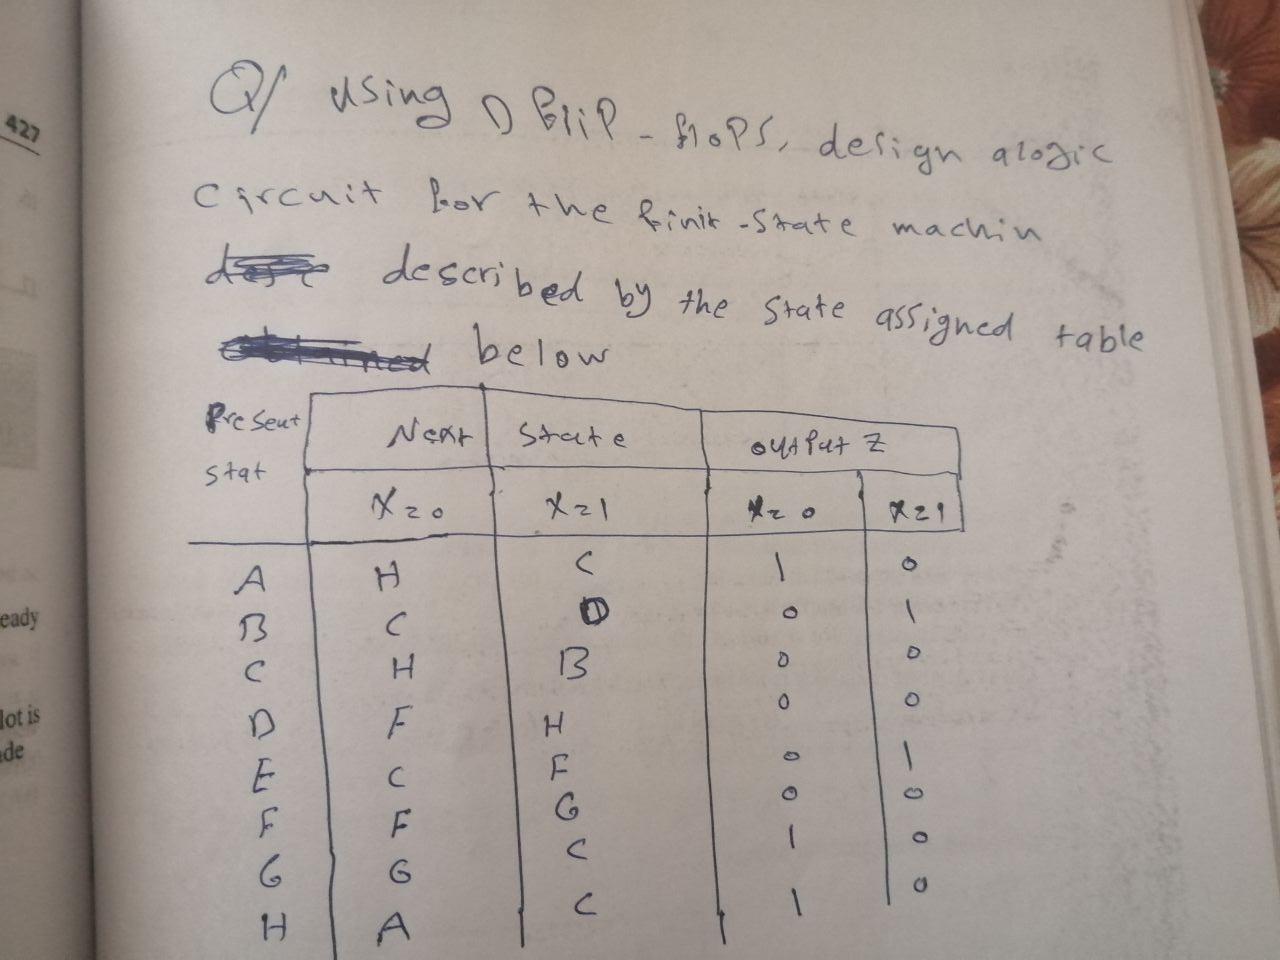 427
eady
lot is
ade
Q/ using D flip-flops, design a logic
circuit for the finit-state machin
described by the state assigned table
below
Present stat | Next State | output Z
x=0 | x=1 | x=0 | x=1
A H C 1 0
B C D 0 1
C H B 0 0
D F H 0 0
E C F 0 1
F F G 0 0
G G C 1 0
H A C 1 0